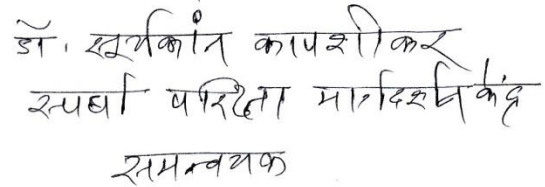 डॉ. सूर्यकांत कापशीकर
स्पर्धा परिक्षा मार्गदर्शन केंद्र
समन्वयक